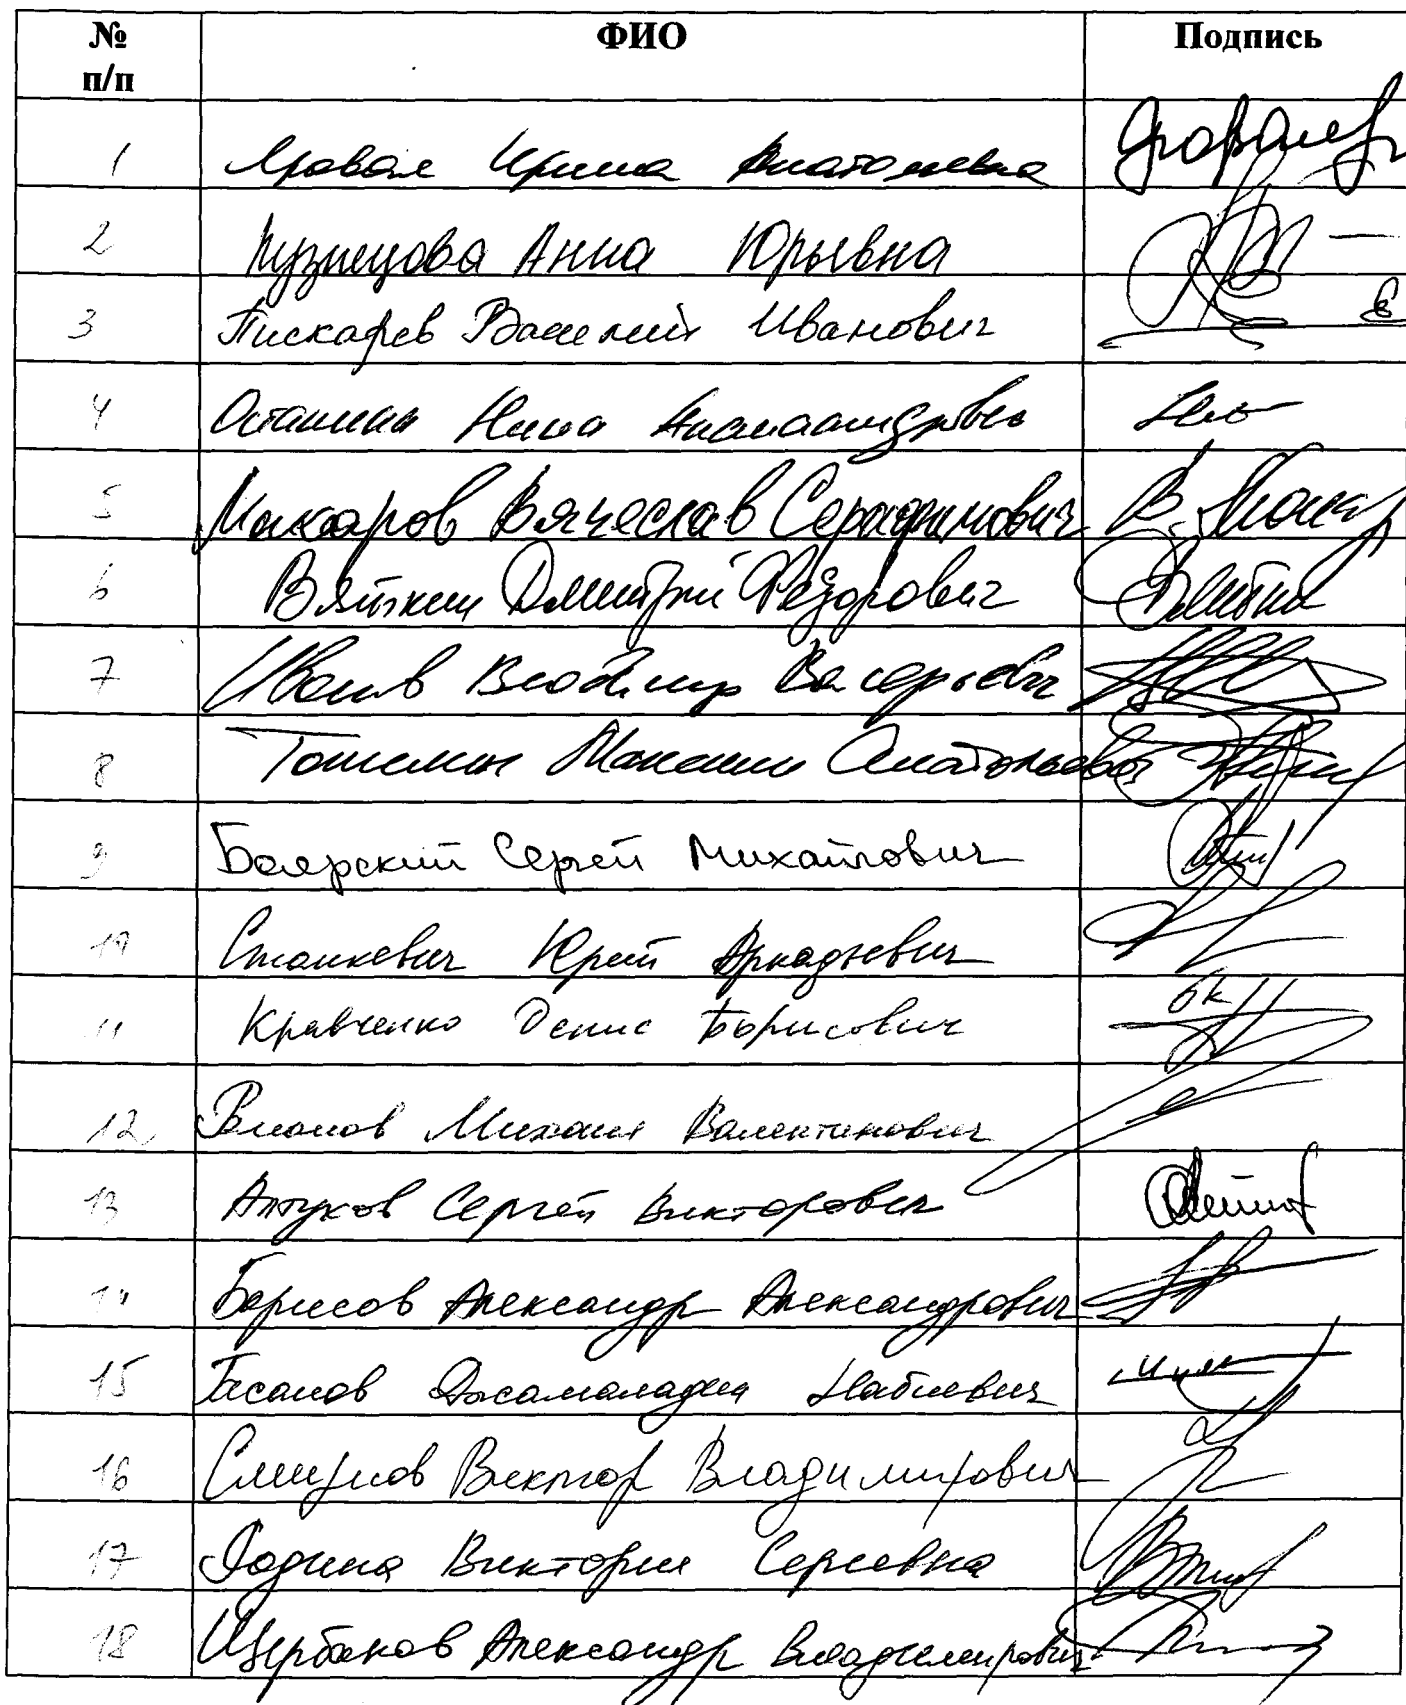 № п/п ФИО Подпись
1 Яровая Ирина Анатольевна
2 Кузнецова Анна Юрьевна
3 Пискарев Василий Иванович
4 Останина Нина Александровна
5 Макаров Вячеслав Серафимович В. Макар
6 Вяткин Дмитрий Фёдорович
7 Иванов Владимир Валерьевич
8 Топилин Максим Анатольевич
9 Боярский Сергей Михайлович
10 Станкевич Юрий Аркадьевич
11 Кравченко Денис Борисович
12 Романов Михаил Валентинович
13 Алтухов Сергей Викторович
14 Борисов Александр Александрович
15 Гасанов Джамаладин Набиевич
16 Смирнов Виктор Владимирович
17 Родина Виктория Сергеевна
18 Щербаков Александр Владимирович